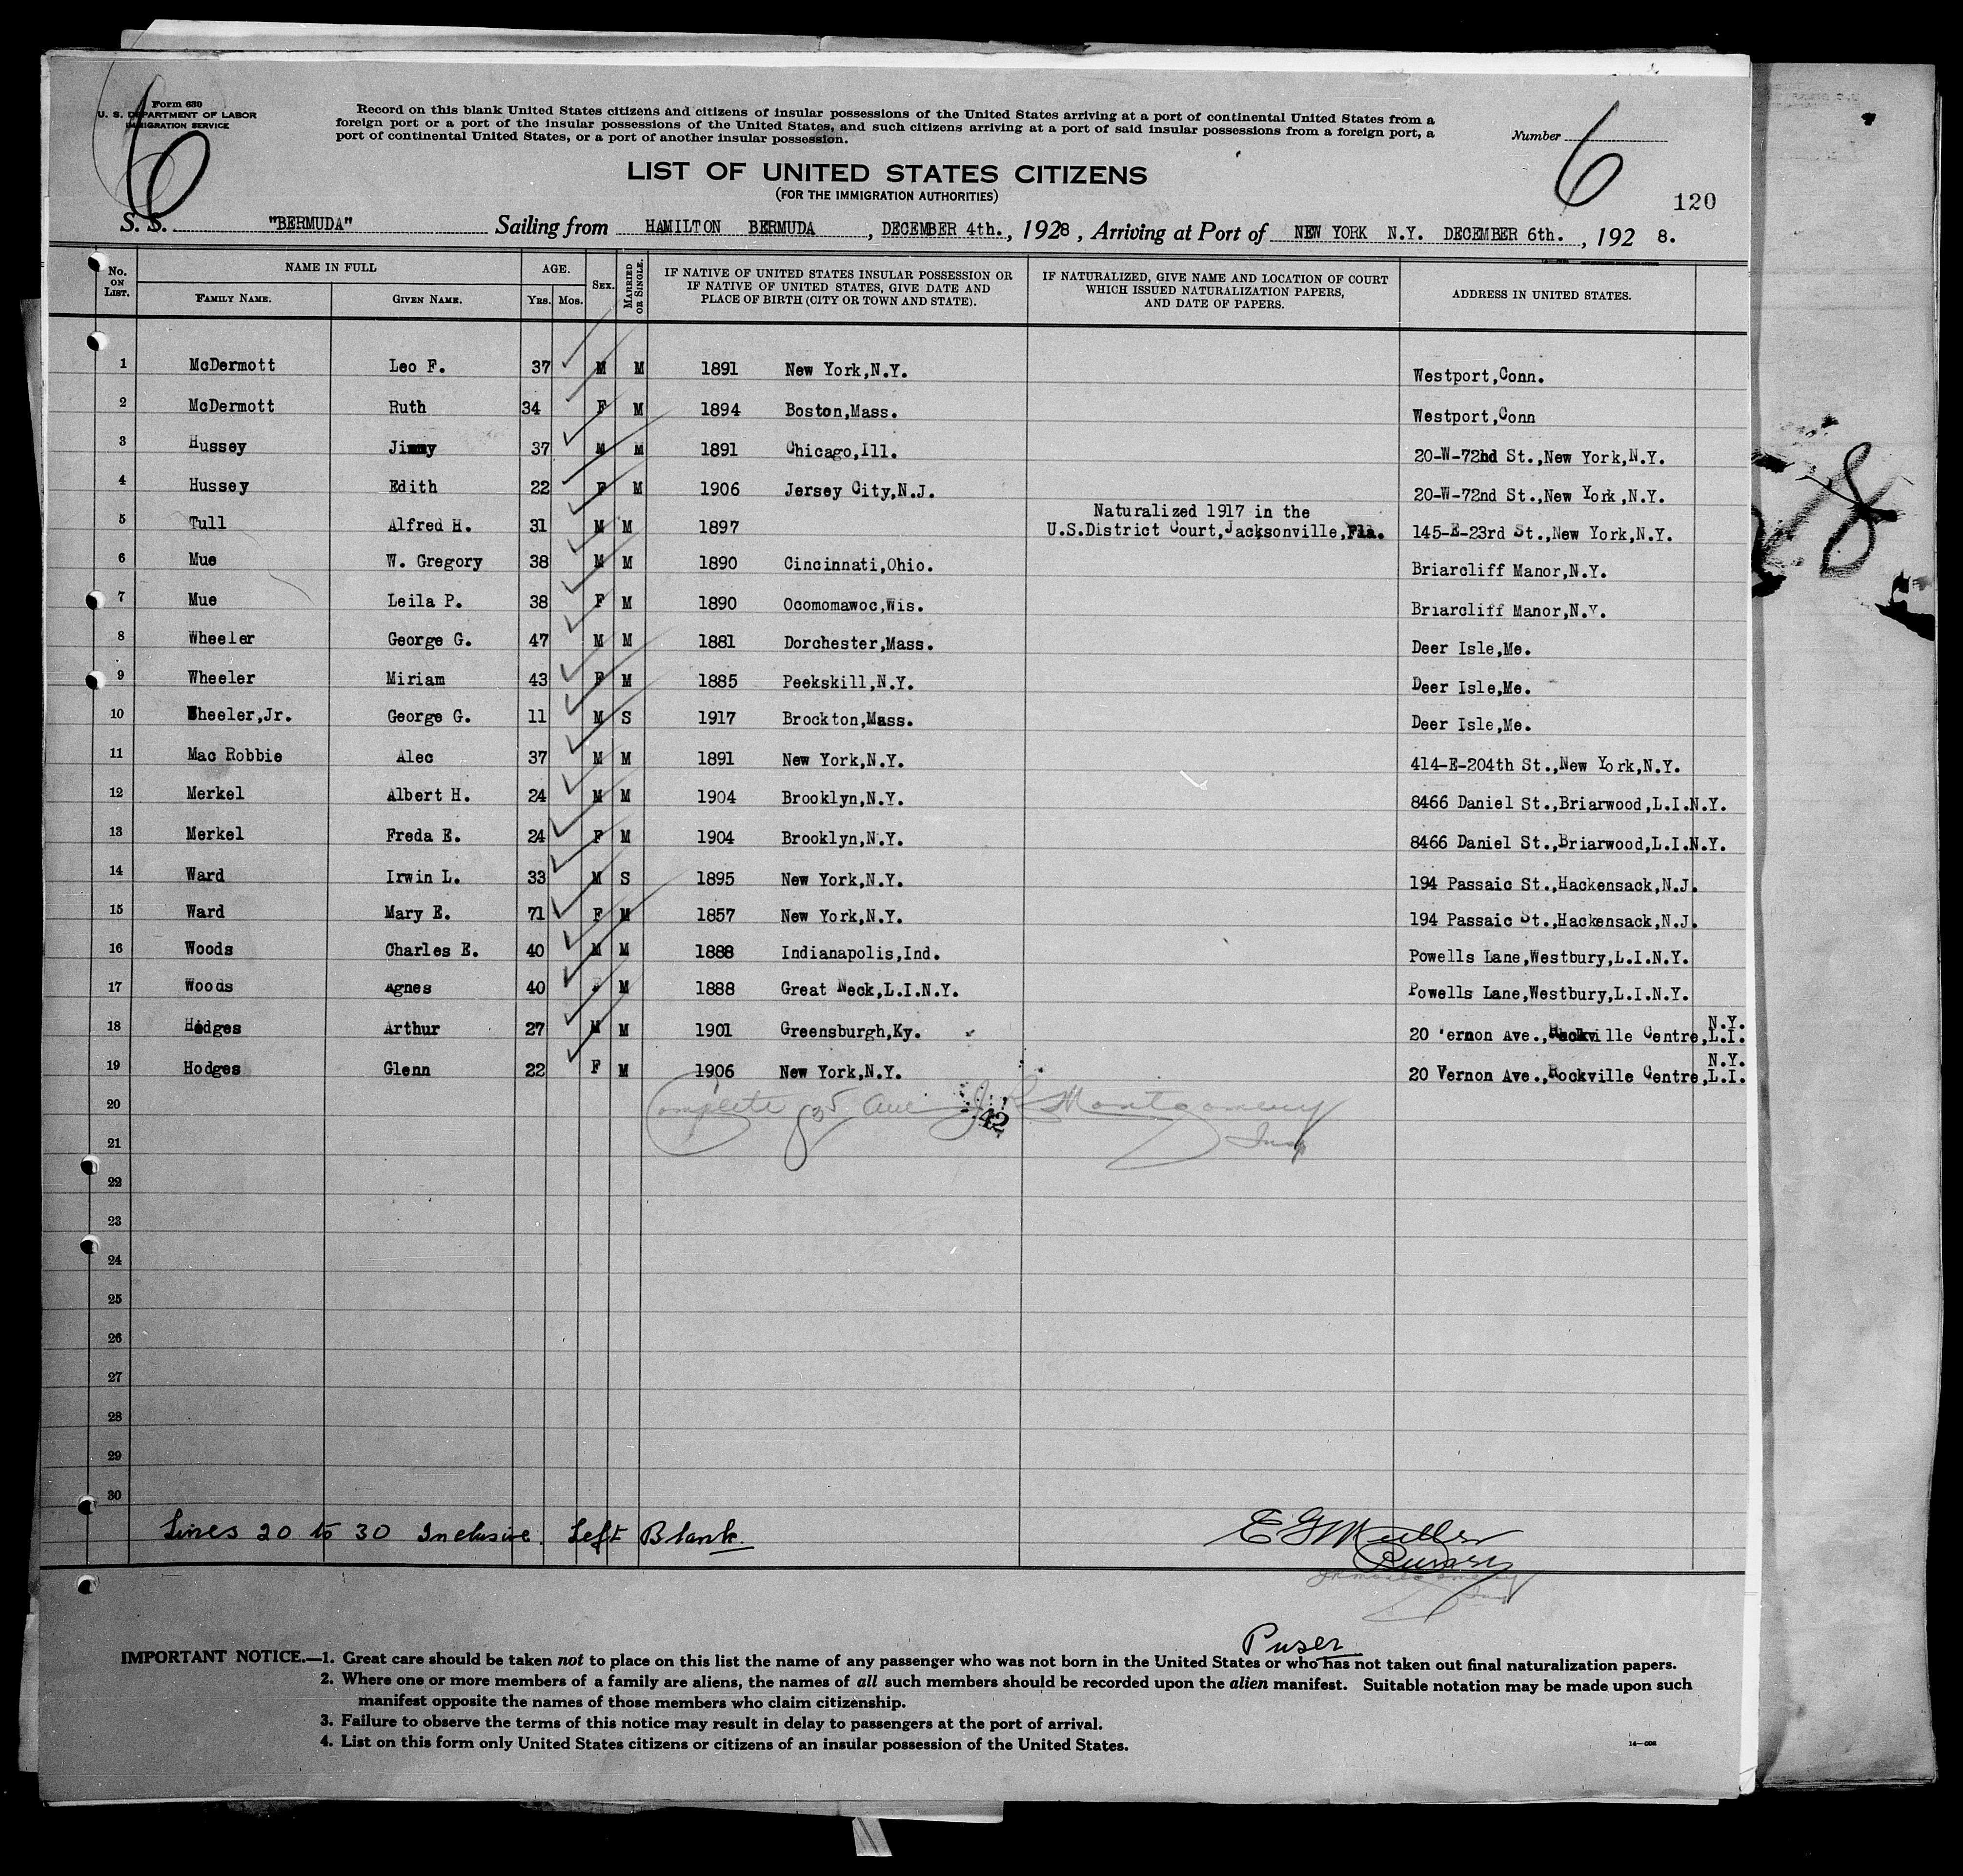 Form 630
U. S. DEPARTMENT OF LABOR
IMMIGRATION SERVICE
6
Record on this blank United States citizens and citizens of insular possessions of the United States arriving at a port of continental United States from a
foreign port or a port of the insular possessions of the United States, and such citizens arriving at a port of said insular possessions from a foreign port, a
port of continental United States, or a port of another insular possession.
Number 6
LIST OF UNITED STATES CITIZENS
(FOR THE IMMIGRATION AUTHORITIES)
120
S. S. "BERMUDA" Sailing from HAMILTON BERMUDA, DECEMBER 4th., 1928, Arriving at Port of NEW YORK N.Y. DECEMBER 6th., 192 8.
No. ON LIST. NAME IN FULL FAMILY NAME. GIVEN NAME. AGE. Yrs. Mos. Sex. MARRIED OR SINGLE. IF NATIVE OF UNITED STATES INSULAR POSSESSION OR IF NATIVE OF UNITED STATES, GIVE DATE AND PLACE OF BIRTH (CITY OR TOWN AND STATE). IF NATURALIZED, GIVE NAME AND LOCATION OF COURT WHICH ISSUED NATURALIZATION PAPERS, AND DATE OF PAPERS. ADDRESS IN UNITED STATES.
1 McDermott Leo F. 37 M M 1891 New York,N.Y. Westport,Conn.
2 McDermott Ruth 34 F M 1894 Boston,Mass. Westport,Conn
3 Hussey Jimmy 37 M M 1891 Chicago,Ill. 20-W-72nd St.,New York,N.Y.
4 Hussey Edith 22 F M 1906 Jersey City,N.J. 20-W-72nd St.,New York,N.Y.
5 Tull Alfred H. 31 M M 1897 Naturalized 1917 in the U.S.District Court,Jacksonville,Fla. 145-E-23rd St.,New York,N.Y.
6 Mue W. Gregory 38 M M 1890 Cincinnati,Ohio. Briarcliff Manor,N.Y.
7 Mue Leila P. 38 F M 1890 Ocomomawoc,Wis. Briarcliff Manor,N.Y.
8 Wheeler George G. 47 M M 1881 Dorchester,Mass. Deer Isle,Me.
9 Wheeler Miriam 43 F M 1885 Peekskill,N.Y. Deer Isle,Me.
10 Wheeler,Jr. George G. 11 M S 1917 Brockton,Mass. Deer Isle,Me.
11 Mac Robbie Alec 37 M M 1891 New York,N.Y. 414-E-204th St.,New York,N.Y.
12 Merkel Albert H. 24 M M 1904 Brooklyn,N.Y. 8466 Daniel St.,Briarwood,L.I.N.Y.
13 Merkel Freda E. 24 F M 1904 Brooklyn,N.Y. 8466 Daniel St.,Briarwood,L.I.N.Y.
14 Ward Irwin L. 33 M S 1895 New York,N.Y. 194 Passaic St.,Hackensack,N.J.
15 Ward Mary E. 71 F M 1857 New York,N.Y. 194 Passaic St.,Hackensack,N.J.
16 Woods Charles E. 40 M M 1888 Indianapolis,Ind. Powells Lane,Westbury,L.I.N.Y.
17 Woods Agnes 40 F M 1888 Great Neck,L.I.N.Y. Powells Lane,Westbury,L.I.N.Y.
18 Hodges Arthur 27 M M 1901 Greensburgh,Ky. 20 Vernon Ave.,Rockville Centre,L.I. N.Y.
19 Hodges Glenn 22 F M 1906 New York,N.Y. 20 Vernon Ave.,Rockville Centre,L.I. N.Y.
20 Complete Montgomery
42
21 Insp
22
23
24
25
26
27
28
29
30
Lines 20 to 30 Inclusive. Left Blank.
E G Muller
Purser
Purser
IMPORTANT NOTICE.—1. Great care should be taken not to place on this list the name of any passenger who was not born in the United States or who has not taken out final naturalization papers.
2. Where one or more members of a family are aliens, the names of all such members should be recorded upon the alien manifest. Suitable notation may be made upon such
manifest opposite the names of those members who claim citizenship.
3. Failure to observe the terms of this notice may result in delay to passengers at the port of arrival.
4. List on this form only United States citizens or citizens of an insular possession of the United States.